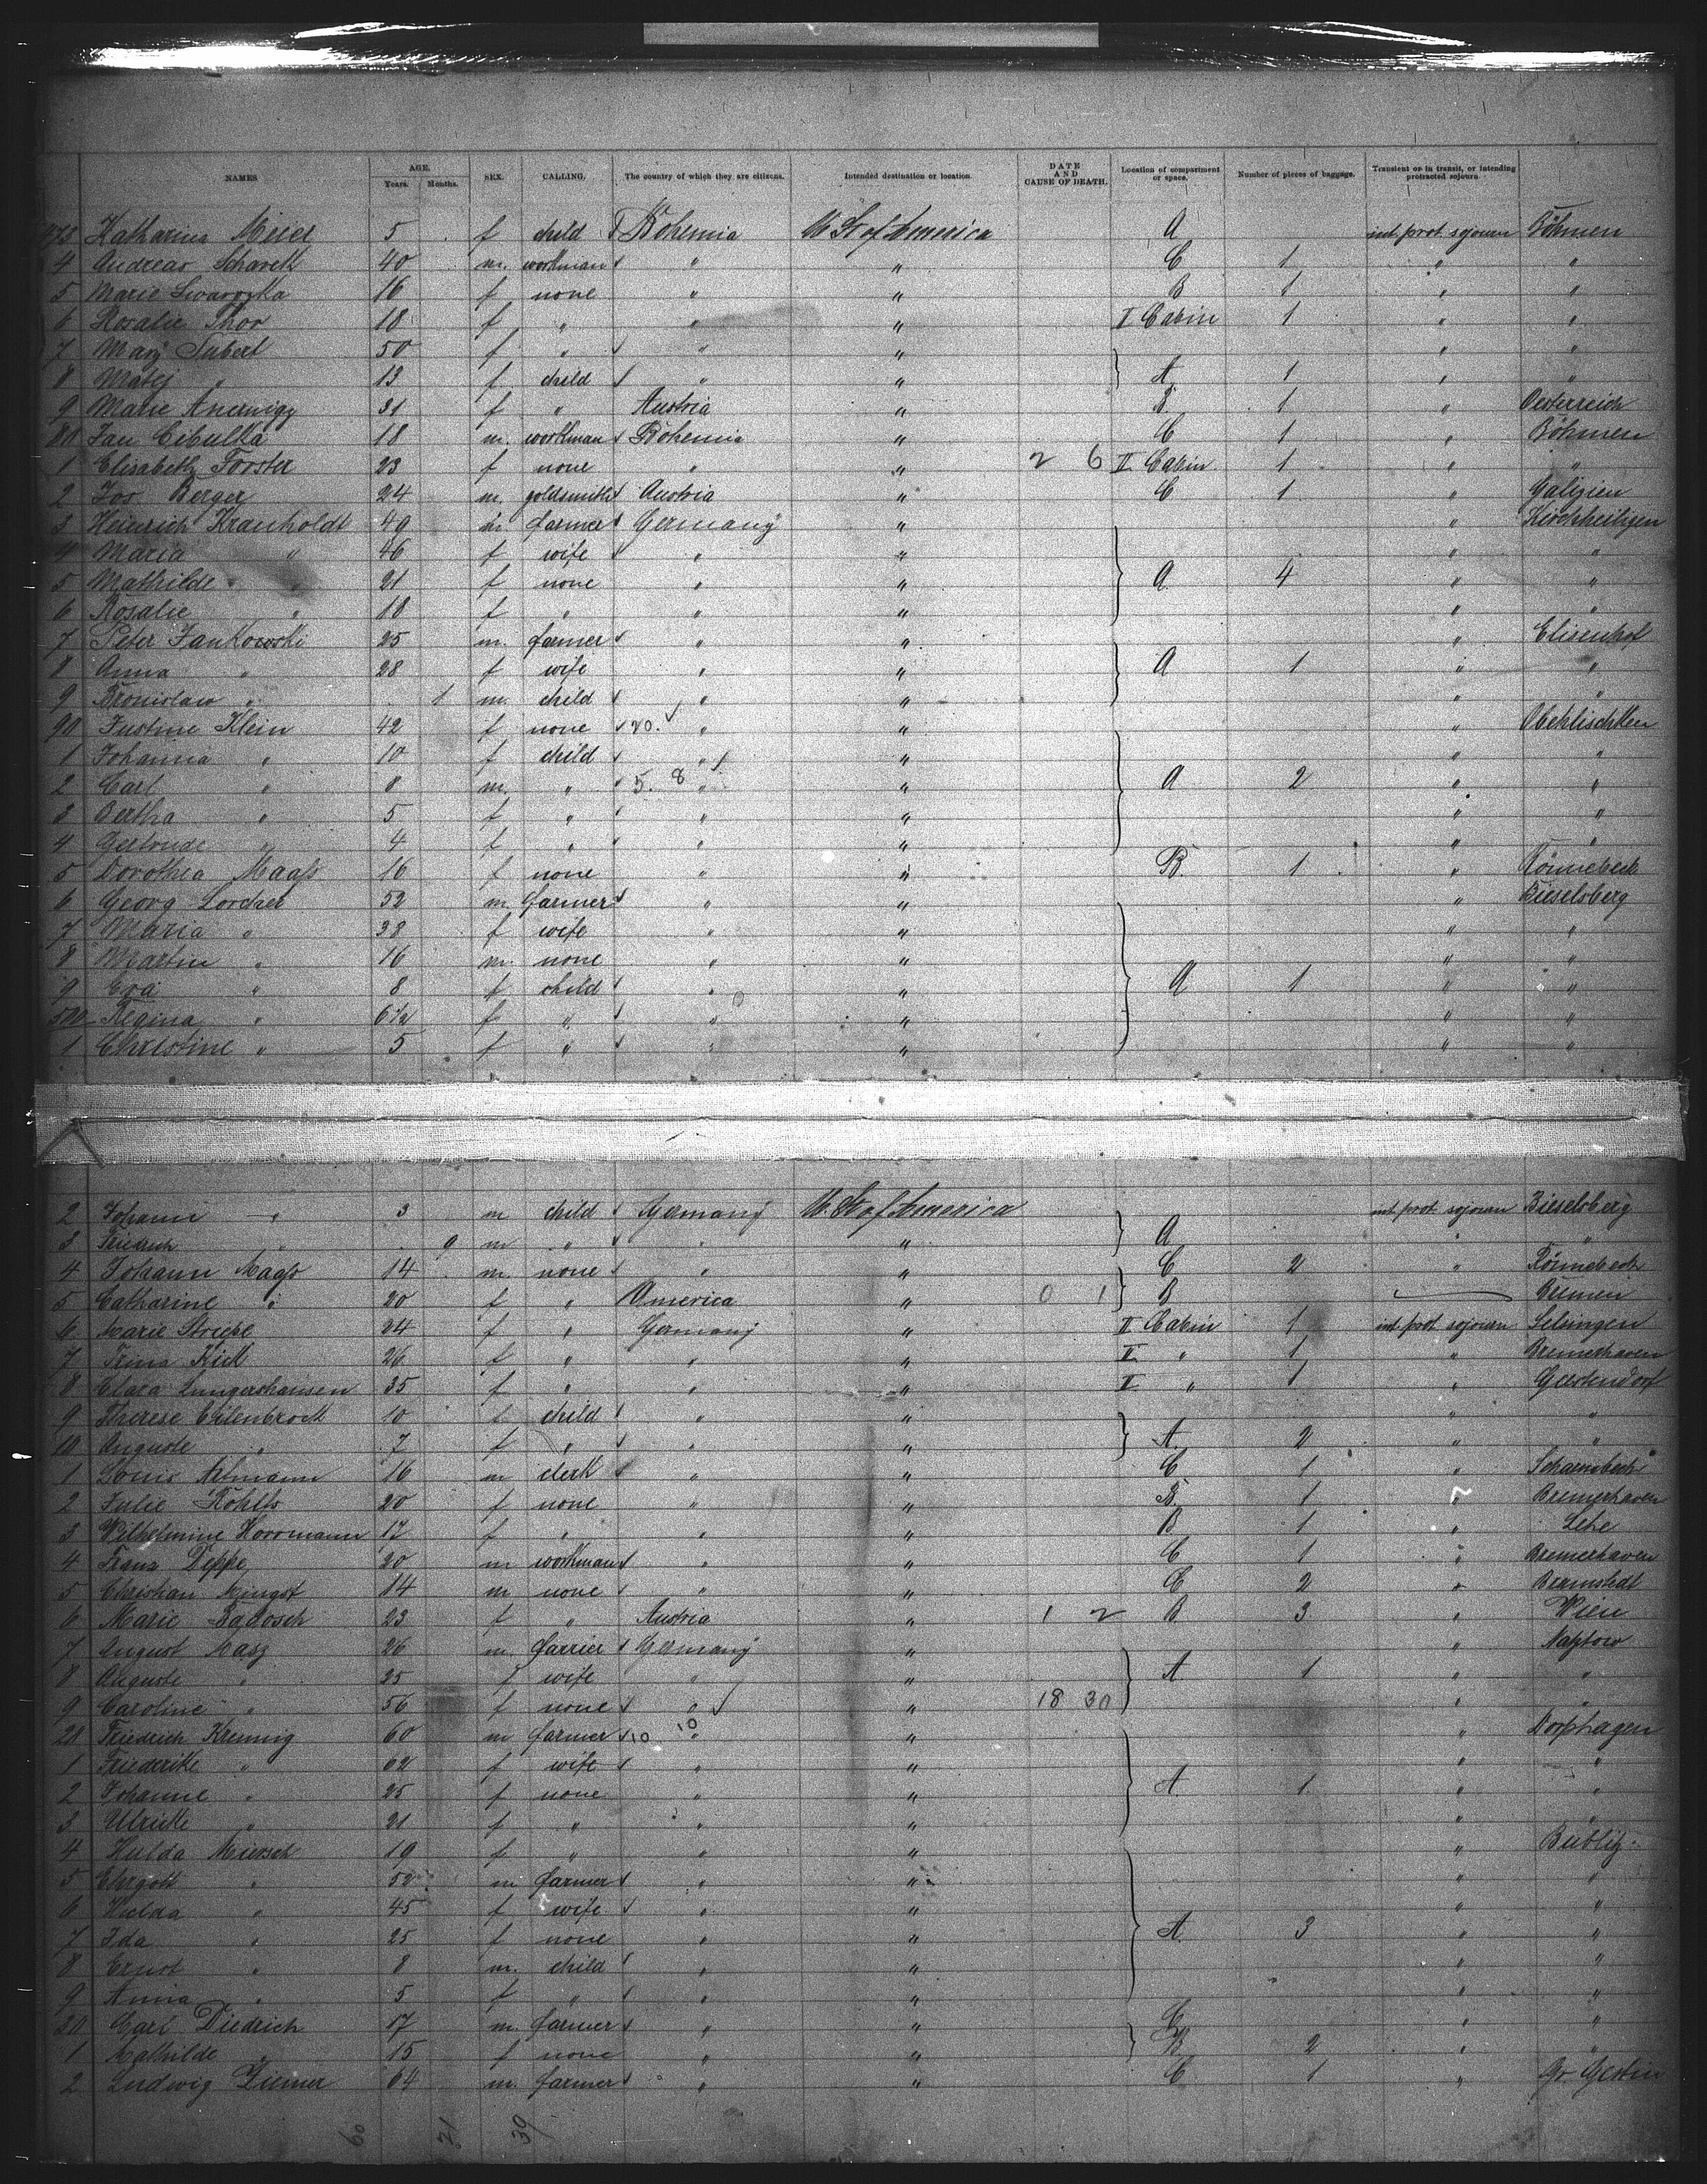 NAMES AGE. Years. Months. SEX. CALLING. The country of which they are citizens. Intended destination or location. DATE AND CAUSE OF DEATH. Location of compartment or space. Number of pieces of baggage. Transient or in transit, or intending protracted sojourn.
Katharina Meier 5 f child Bohemia U. St. of America A int. prot. sojourn Böhmen
4 Andreas 40 m. workman " " C 1 " "
5 Marie 16 f none " " B 1 " "
6 Rosalie Thor 18 f " " " II Cabin 1 " "
7 Mary Subert 50 f " " " " "
8 Matej " 13 f child " " A 1 " "
9 Marie 31 f " Austria " B 1 " Oesterreich
80 Jan Cibulka 18 m. workman Bohemia " C 1 " Böhmen
1 Elisabeth Forster 23 f none " " 2 6 II Cabin 1 " "
2 Jos Berger 24 m. goldsmith Austria " C 1 " Galizien
3 Heinrich Krauholdt 49 m farmer Germany " " Kirchheiligen
4 Maria " 46 f wife " " " "
5 Mathilde " 21 f none " " A 4 " "
6 Rosalie " 18 f " " " " "
7 Peter Jankowski 25 m. farmer " " " Elisenhof
8 Anna " 28 f wife " " A 1 " "
9 Bronislaw " 1 m. child " " " "
90 Justine Klein 42 f none 20. " " "
1 Johanna " 10 f child " " " "
2 Carl " 8 m. " 5. 8 " " A 2 " "
3 Bertha " 5 f " " " " "
4 Gertrude " 4 f " " " " "
5 Dorothea Maass 16 f none " " B. 1 " Rönnebeck
6 Georg Lorcher 52 m farmer " " " Bieselsberg
7 Maria " 38 f wife " " " "
8 Martin " 16 m. none " " " "
9 Eva " 8 f child " " A 1 " "
500 Regina " 6 1/2 f " " " " "
1 Christine " 5 f " " " " "
2 Johann " 3 m child Germany U. St. of America int. prot. sojourn Bieselsberg
3 Friedrich " 9 m " " " A " "
4 Johann Maass 14 m. none " " C 2 " Rönnebeck
5 Catharine " 20 f " America " 0 1 B Bremen
6 Marie 24 f " Germany " II Cabin 1 int. prot. sojourn Selsingen
7 Trina Kück 26 f " " " II " 1 " Bremerhaven
8 Clara Lungershausen 35 f " " " II " 1 " Geestendorf
9 Therese Eilenbrock 10 f child " " " "
10 Auguste " 7 f " " " A 2 " "
1 Louis 16 m clerk " " C 1 " Scharmbeck
2 Julie 20 f none " " B. 1 " Bremerhaven
3 Wilhelmine Horrmann 17 f " " " B 1 " Lehe
4 Franz Teppe 20 m workman " " C 1 " Bremerhaven
5 Christian Mingst 14 m none " " C 2 " Bramstedt
6 Marie 23 f " Austria " 1 2 B 3 " Wien
7 August Nasz 26 m. farrier Germany " "
8 Auguste " 25 f wife " " A 1 " "
9 Caroline " 56 f none " " 18 30 " "
20 Friedrich Krennig 60 m farmer 10 10 " " "
1 Friederike " 62 f wife " " " "
2 Johanne " 25 f none " " A 1. " "
3 Ulrike " 21 f " " " " "
4 Hulda Miersch 19 f " " " " Bublitz
5 Ehrgott " 52 m farmer " " " "
6 Hulda " 45 f wife " " " "
7 Ida " 25 f none " " A. 3 " "
8 Ernst " 8 m. child " " " "
9 Anna " 5 f " " " " "
20 Carl Diedrich 17 m. farmer " " C " "
1 Mathilde " 15 f none " " B 2 " "
2 Ludwig 64 m. farmer " " C 1 " Gr. Gestin
60 21 39